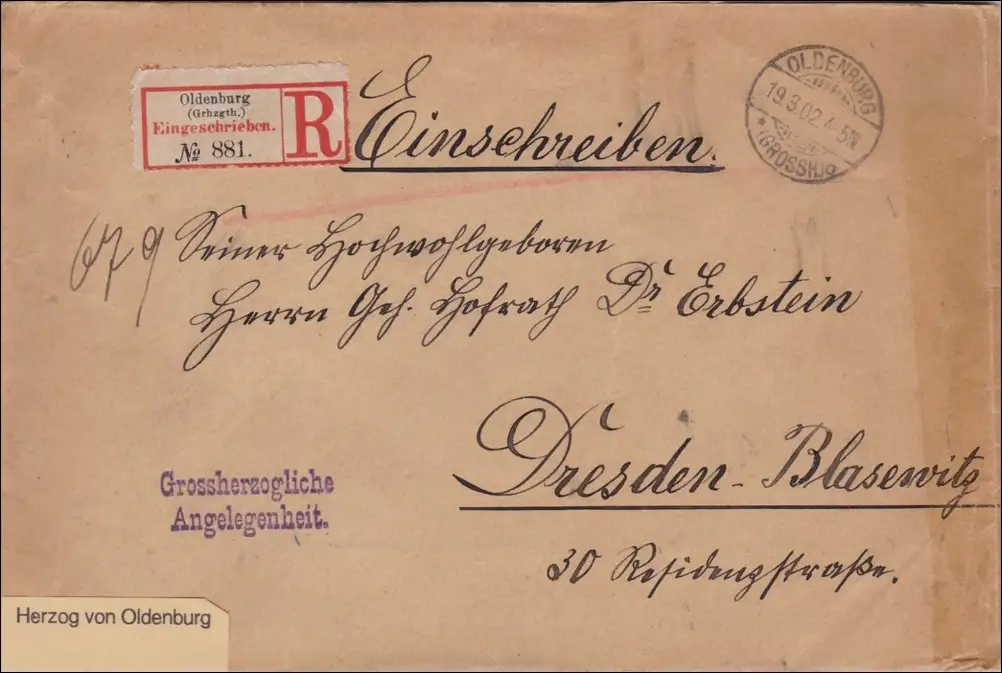 Oldenburg
(Grhzgth.)
Eingeschrieben.
№ 881.
R
Einschreiben.
OLDENBURG
19.3.02. 4-5N
* (GROSSH.) a
679
Seiner Hochwohlgeboren
Herrn Geh. Hofrath Dr Erbstein
Dresden - Blasewitz
30 Residenzstraße.
Grossherzogliche
Angelegenheit.
Herzog von Oldenburg